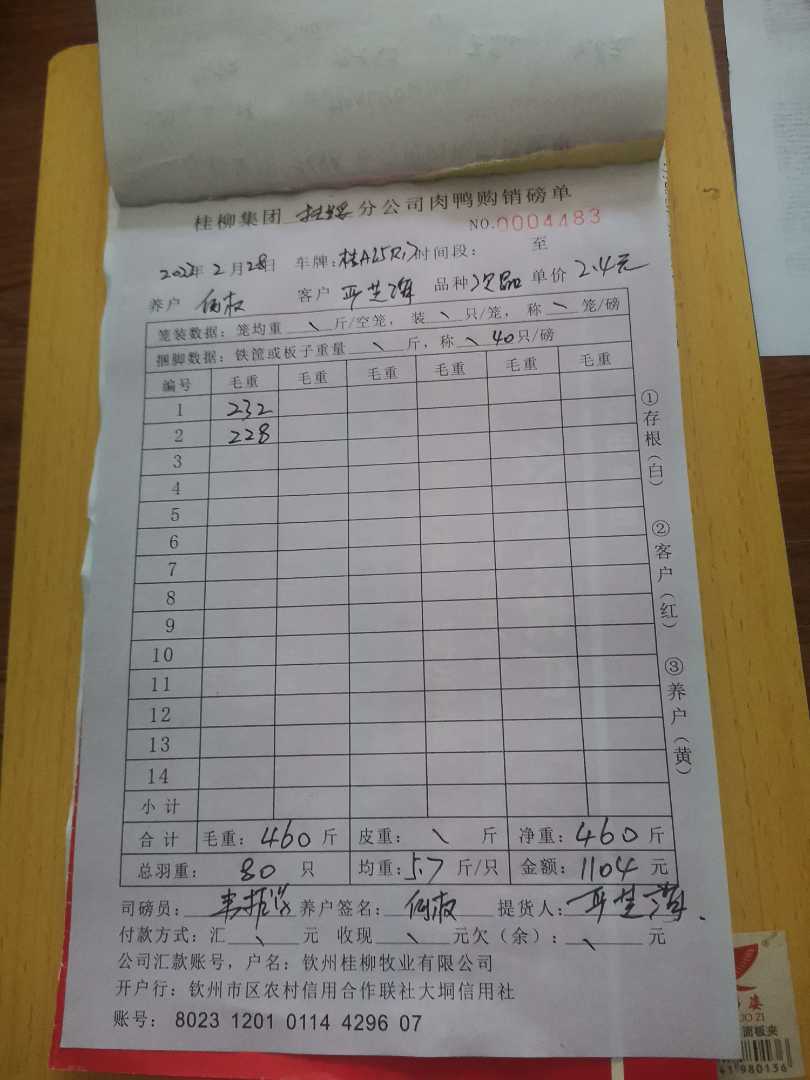 桂柳集团 分公司肉鸭购销磅单
NO.0004483
2022年2月28日 车牌:桂A 时间段: 至
养户 何权 客户 品种 次品 单价 2.4元
笼装数据: 笼均重 \ 斤/空笼, 装 \ 只/笼, 称 \ 笼/磅
捆脚数据: 铁筐或板子重量 \ 斤, 称 \ 40只/磅
编号 毛重 毛重 毛重 毛重 毛重 毛重
1 232
2 228
3
4
5
6
7
8
9
10
11
12
13
14
小计
合计 毛重: 460 斤 皮重: \ 斤 净重: 460 斤
总羽重: 80 只 均重: 5.7 斤/只 金额: 1104 元
司磅员: 养户签名: 何权 提货人:
付款方式: 汇 \ 元 收现 \ 元欠(余): \ 元
公司汇款账号, 户名: 钦州桂柳牧业有限公司
开户行: 钦州市区农村信用合作联社大垌信用社
账号: 8023 1201 0114 4296 07
①存根(白)
②客户(红)
③养户(黄)
面板夹